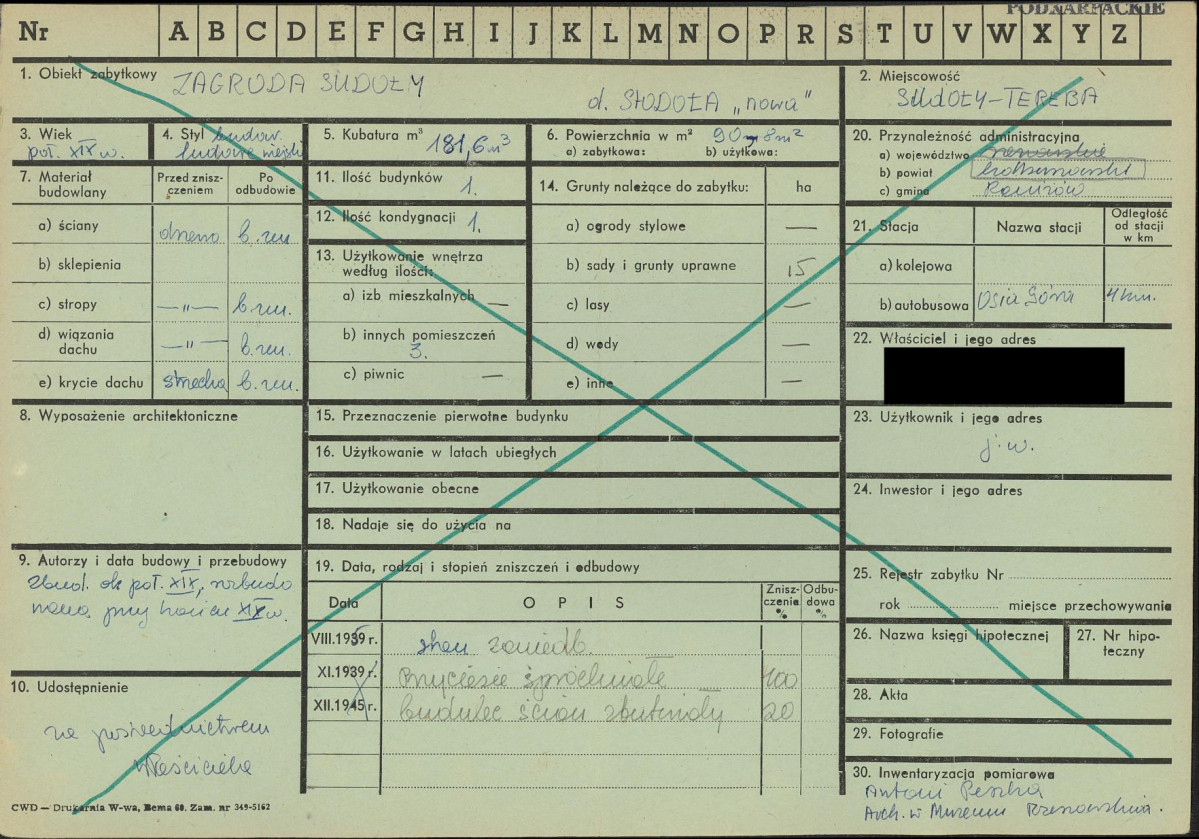 PODKARPACKIE
Nr A B C D E F G H I J K L M N O P R S T U V W X Y Z
1. Obiekt zabytkowy ZAGRODA SUDOŁY
d. STODOŁA „nowa”
2. Miejscowość
SUDOŁY-TEREBA
3. Wiek
poł. XIX w.
4. Styl budow.
ludowe
5. Kubatura m³
181,6 m³
6. Powierzchnia w m²
a) zabytkowa: b) użytkowa:
7. Materiał budowlany
Przed zniszczeniem
Po odbudowie
a) ściany drewno b. zm.
b) sklepienia
c) stropy —„— b. zm.
d) wiązania dachu —„— b. zm.
e) krycie dachu strzecha b. zm.
8. Wyposażenie architektoniczne
9. Autorzy i data budowy i przebudowy
zbud. ok poł. XIX, rozbudo
wana przy końcu XIX w.
10. Udostępnienie
za pośrednictwem
właściciela
11. Ilość budynków 1.
12. Ilość kondygnacji 1.
13. Użytkowanie wnętrza
według ilości:
a) izb mieszkalnych —
b) innych pomieszczeń
3.
c) piwnic —
14. Grunty należące do zabytku: ha
a) ogrody stylowe —
b) sady i grunty uprawne 15
c) lasy —
d) wody —
e) inne —
15. Przeznaczenie pierwotne budynku
16. Użytkowanie w latach ubiegłych
17. Użytkowanie obecne
18. Nadaje się do użycia na
19. Data, rodzaj i stopień zniszczeń i odbudowy
Data OPIS Zniszczenia % Odbudowa %
VIII.1939 r. stan zaniedb.
XI.1939 r. Przyciesie spróchniałe 100
XII.1945 r. budulec ścian zbutwiały 20
20. Przynależność administracyjna
a) województwo rzeszowskie
b) powiat kolbuszowski
c) gmina Raniżów
21. Stacja Nazwa stacji Odległość od stacji w km
a) kolejowa
b) autobusowa Osia Góra 4 km.
22. Właściciel i jego adres
23. Użytkownik i jego adres
j. w.
24. Inwestor i jego adres
25. Rejestr zabytku Nr
rok miejsce przechowywania
26. Nazwa księgi hipotecznej
27. Nr hipoteczny
28. Akta
29. Fotografie
30. Inwentaryzacja pomiarowa
Antoni Peszka
Arch. w Muzeum Rzeszowskim.
CWD — Drukarnia W-wa, Bema 60. Zam. nr 349-5162